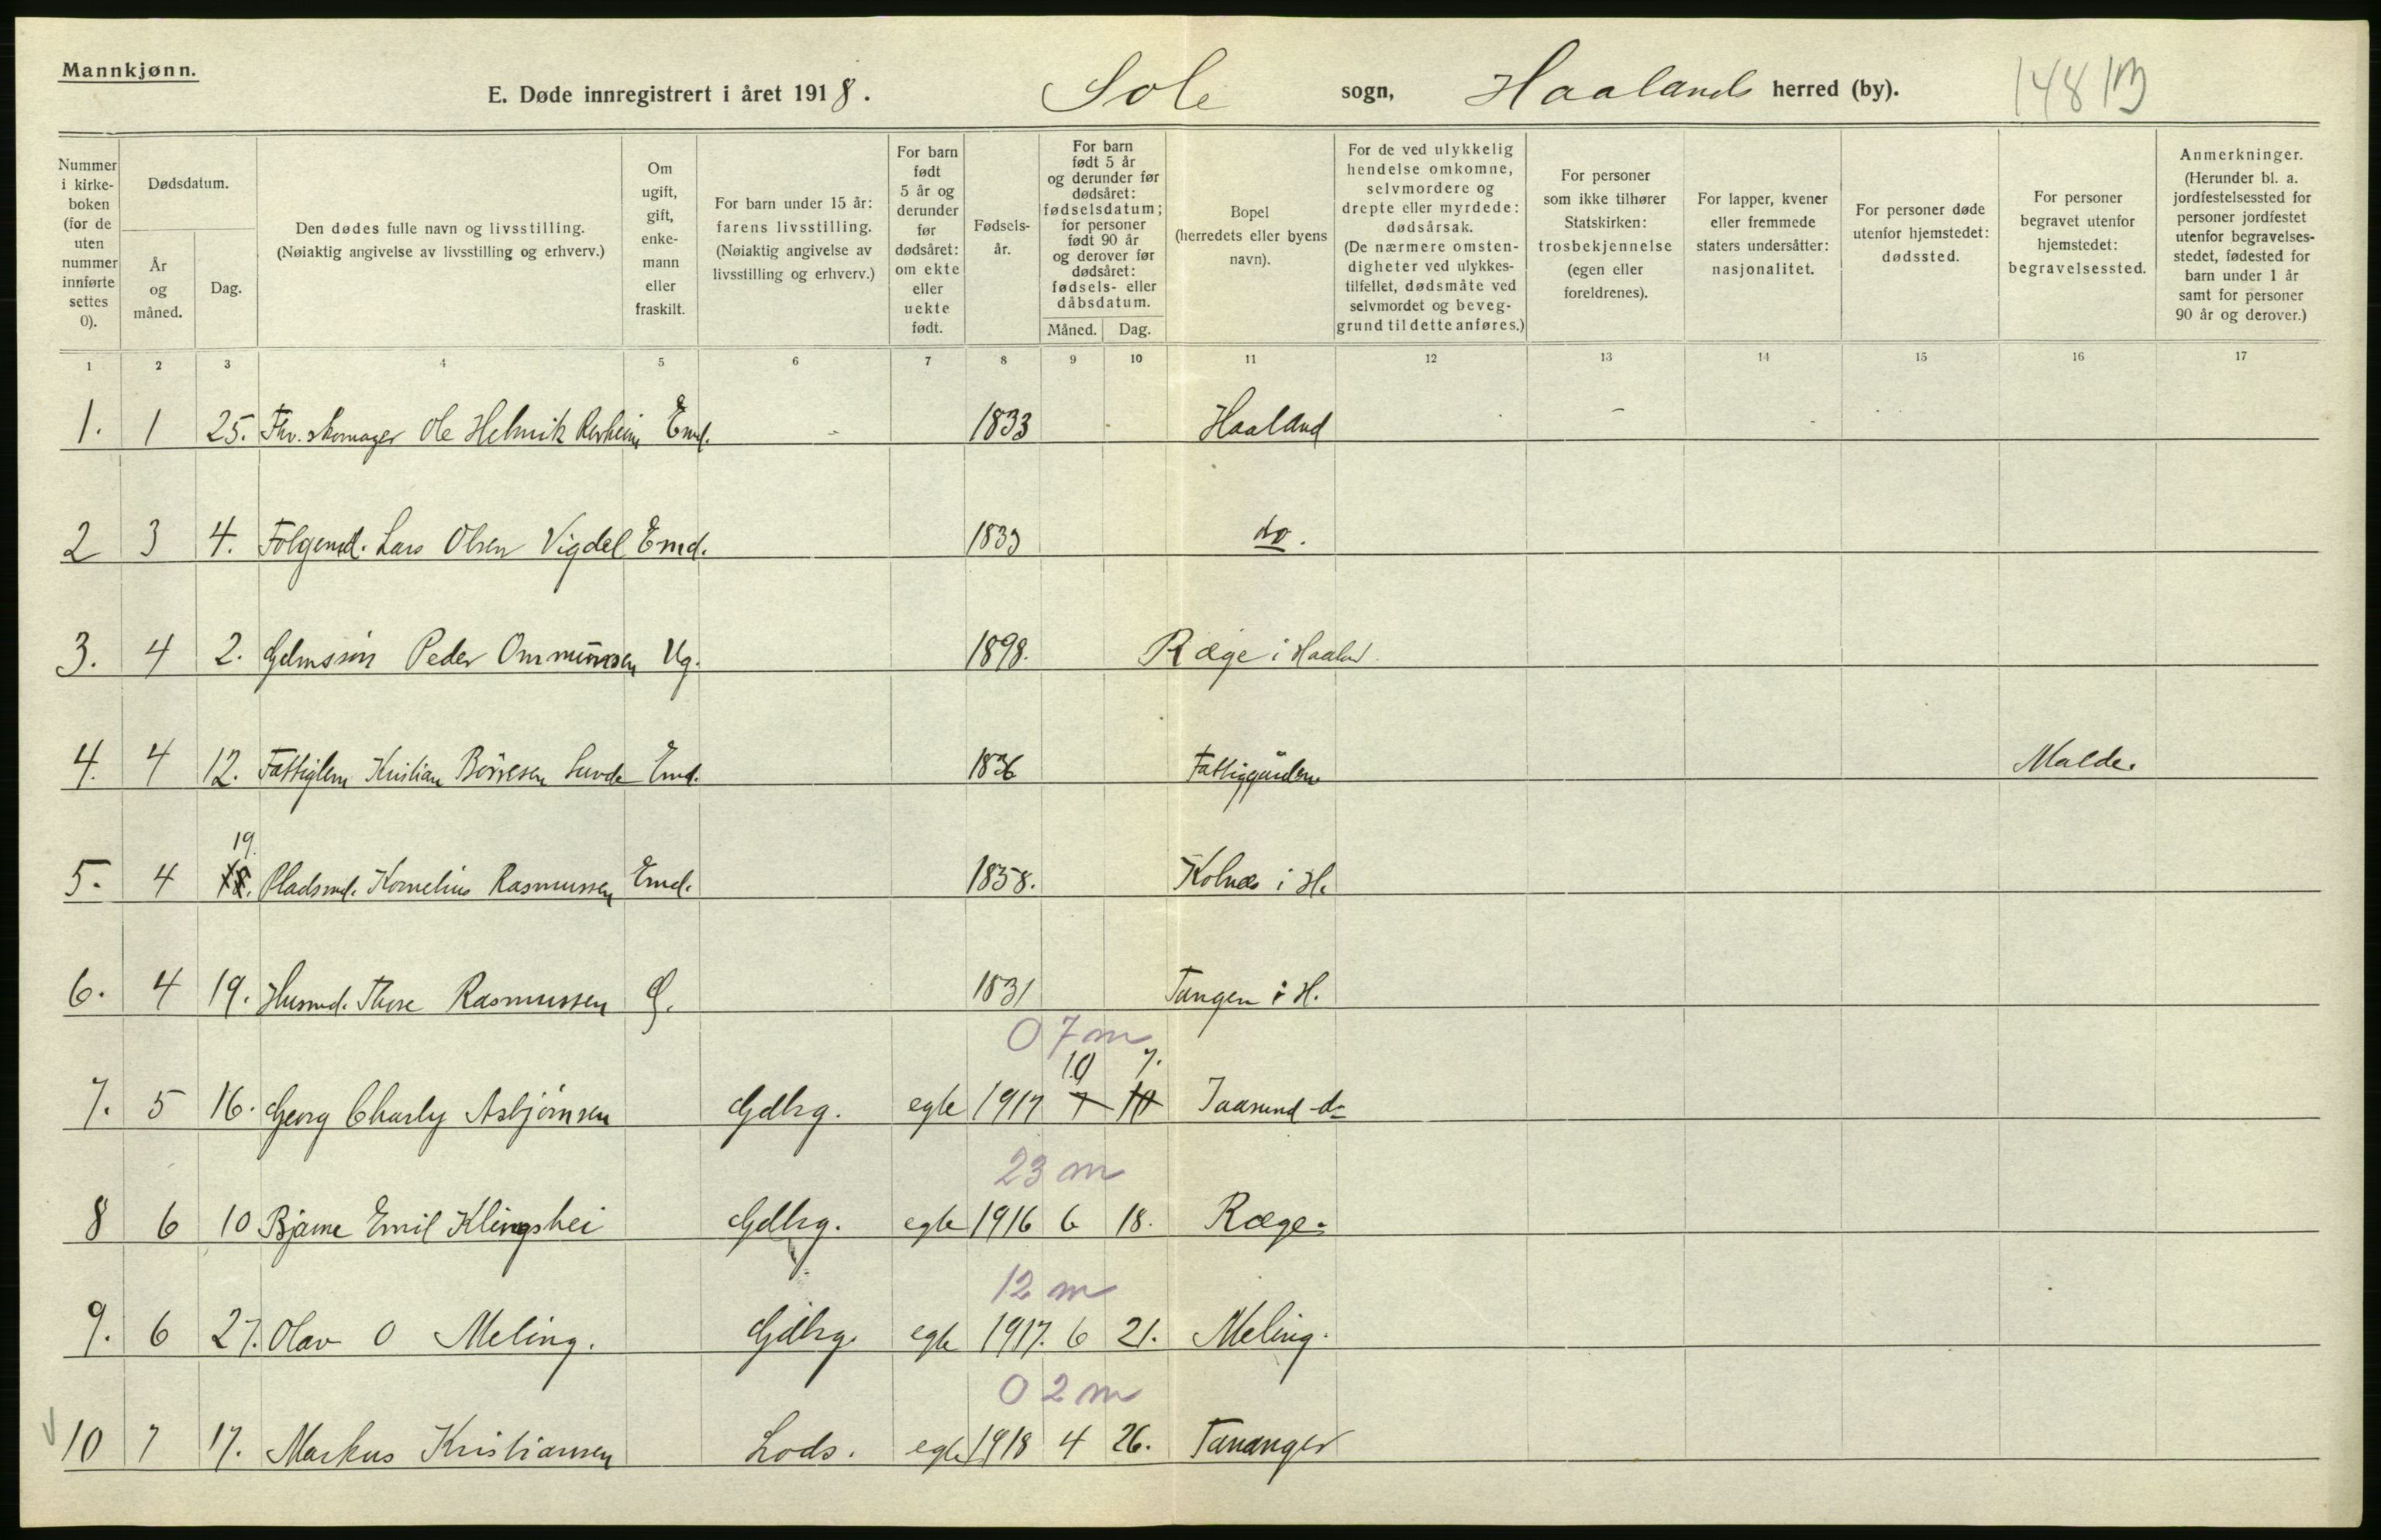 Mannkjønn.
E. Døde innregistrert i året 1918. Sole sogn, Haalands herred (by). 148 M
Nummer i kirkeboken (for de uten nummer innførte settes 0).
Dødsdatum.
År og måned.
Dag.
Den dødes fulle navn og livsstilling. (Nøiaktig angivelse av livsstilling og erhverv.)
Om ugift, gift, enkemann eller fraskilt.
For barn under 15 år: farens livsstilling. (Nøiaktig angivelse av livsstilling og erhverv.)
For barn født 5 år og derunder før dødsåret: om ekte eller uekte født.
Fødselsår.
For barn født 5 år og derunder før dødsåret: fødselsdatum; for personer født 90 år og derover før dødsåret: fødsels- eller dåbsdatum.
Måned. Dag.
Bopel (herredets eller byens navn).
For de ved ulykkelig hendelse omkomne, selvmordere og drepte eller myrdede: dødsårsak. (De nærmere omstendigheter ved ulykkestilfellet, dødsmåte ved selvmordet og beveggrund til dette anføres.)
For personer som ikke tilhører Statskirken: trosbekjennelse (egen eller foreldrenes).
For lapper, kvener eller fremmede staters undersåtter: nasjonalitet.
For personer døde utenfor hjemstedet: dødssted.
For personer begravet utenfor hjemstedet: begravelsessted.
Anmerkninger. (Herunder bl. a. jordfestelsessted for personer jordfestet utenfor begravelsesstedet, fødested for barn under 1 år samt for personer 90 år og derover.)
1 2 3 4 5 6 7 8 9 10 11 12 13 14 15 16 17
1. 1 25. Fhv. skomager Ole Helmik Emd. 1833 Haaland
2 3 4. Folgemd. Lars Olsen Vigdel Emd. 1833 do.
3. 4 2. Peder Ommundsen Ug. 1898. Ræge i Haaland.
4. 4 12. Fattiglem Kristian Börresen Sunde Emd. 1836 Fattiggården Malde.
19.
5. 4 18. Pladsmd. Kornelius Rasmussen Emd. 1858. Kolnes i H.
6. 4 19. Husmd. Thore Rasmussen G. 1831 Tangen i H.
0 7 m
10 7.
7. 5 16. Georg Charly Asbjörnsen Gdbrg. egte 1917 7 10 Jaasund do
23 m
8 6 10 Bjarne Emil Klingshei Gdbrg. egte 1916 6 18. Ræge.
12 m
9. 6 27. Olav O Meling. Gdbrg. egte 1917. 6 21. Meling.
0 2 m
10 7 17. Markus Kristiansen Lods. egte 1918 4 26. Tananger